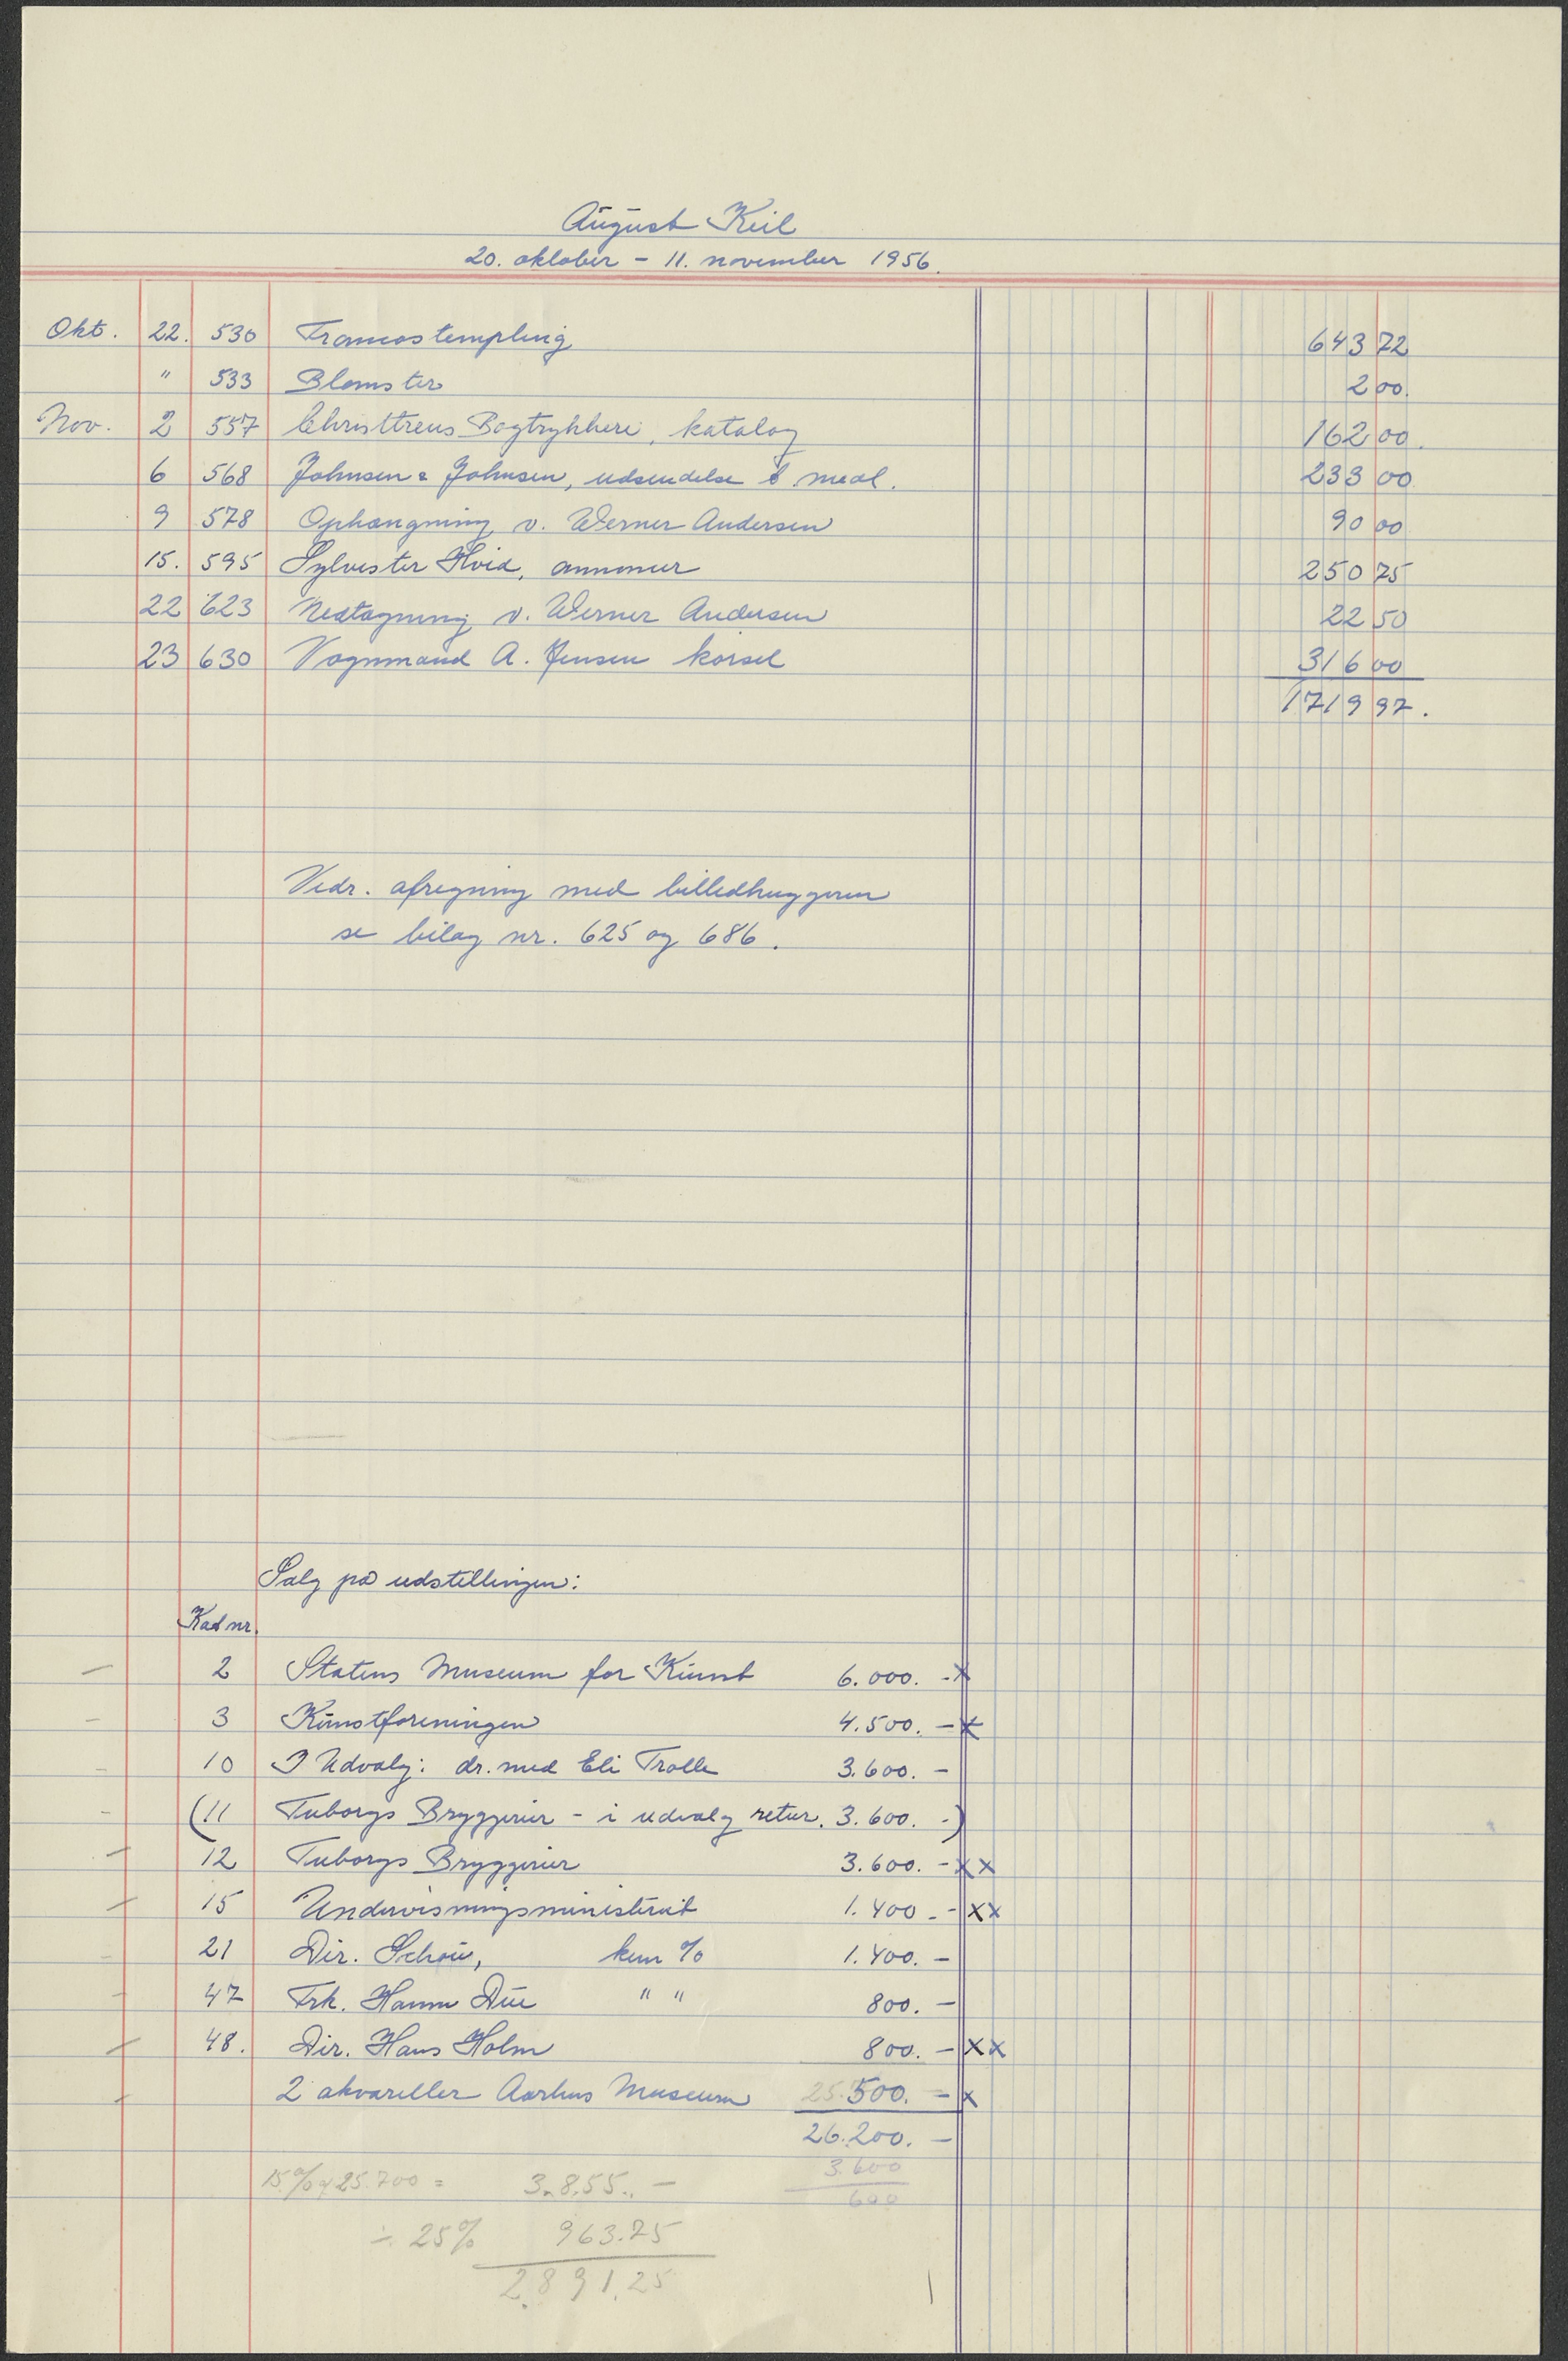 August Keil
20. oktober - 11. november 1956.
Okt. 22. 530 Francostempling 643 72
" 533 Blomster 2 00.
Nov. 2 557 Christtreus Bogtrykkeri, katalog 162 00.
6 568 Johnsen & Johnsen, udsendelse t. medl. 233 00
9 578 Ophængning v. Werner Andersen 90 00
15. 595 Sylvester Hvid, annoncer 250 75
22 623 Nedtagning v. Werner Andersen 22 50
23 630 Vognmand A. Jensen kørsel 316 00
1719 97.
Vedr. afregning med billedhuggeren
se bilag nr. 625 og 686.
Salg på udstillingen:
Kat nr.
- 2 Statens Museum for Kunst 6.000. - x
- 3 Kunstforeningen 4.500. - x
- 10 I Udvalg: dr. med Eli Trolle 3.600. -
- (11 Tuborgs Bryggerier - i udvalg retur. 3.600. -)
- 12 Tuborgs Bryggerier 3.600. - xx
- 15 Undervisningsministeriet 1.400. - xx
- 21 Dir. Schou, kun % 1.400. -
- 47 Frk. Hanne Due " " 800. -
- 48. Dir. Hans Holm 800. - xx
- 2 akvareller Aarhus Museum 500. - x
26.200. -
3.600
15% af 25.700 = 3.855. -
600
÷ 25% 963.75
2.891.25